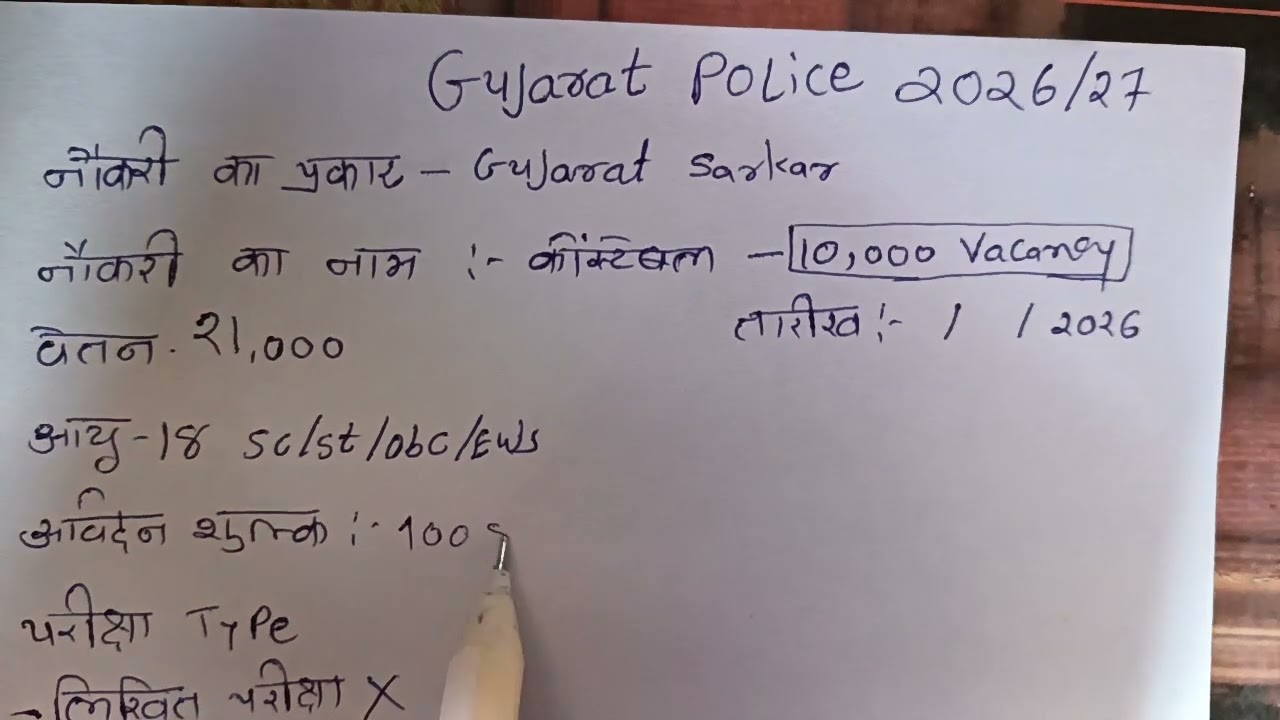 Gujarat Police 2026/27
नौकरी का प्रकार – Gujarat Sarkar
नौकरी का नाम :- कींस्टेबल – 10,000 Vacancy
वेतन. 21,000
तारीख :- / / 2026
आयु - 18 SC/St/obc/EWS
आवेदन शुल्क :- 100
परीक्षा Type
- लिखित परीक्षा X